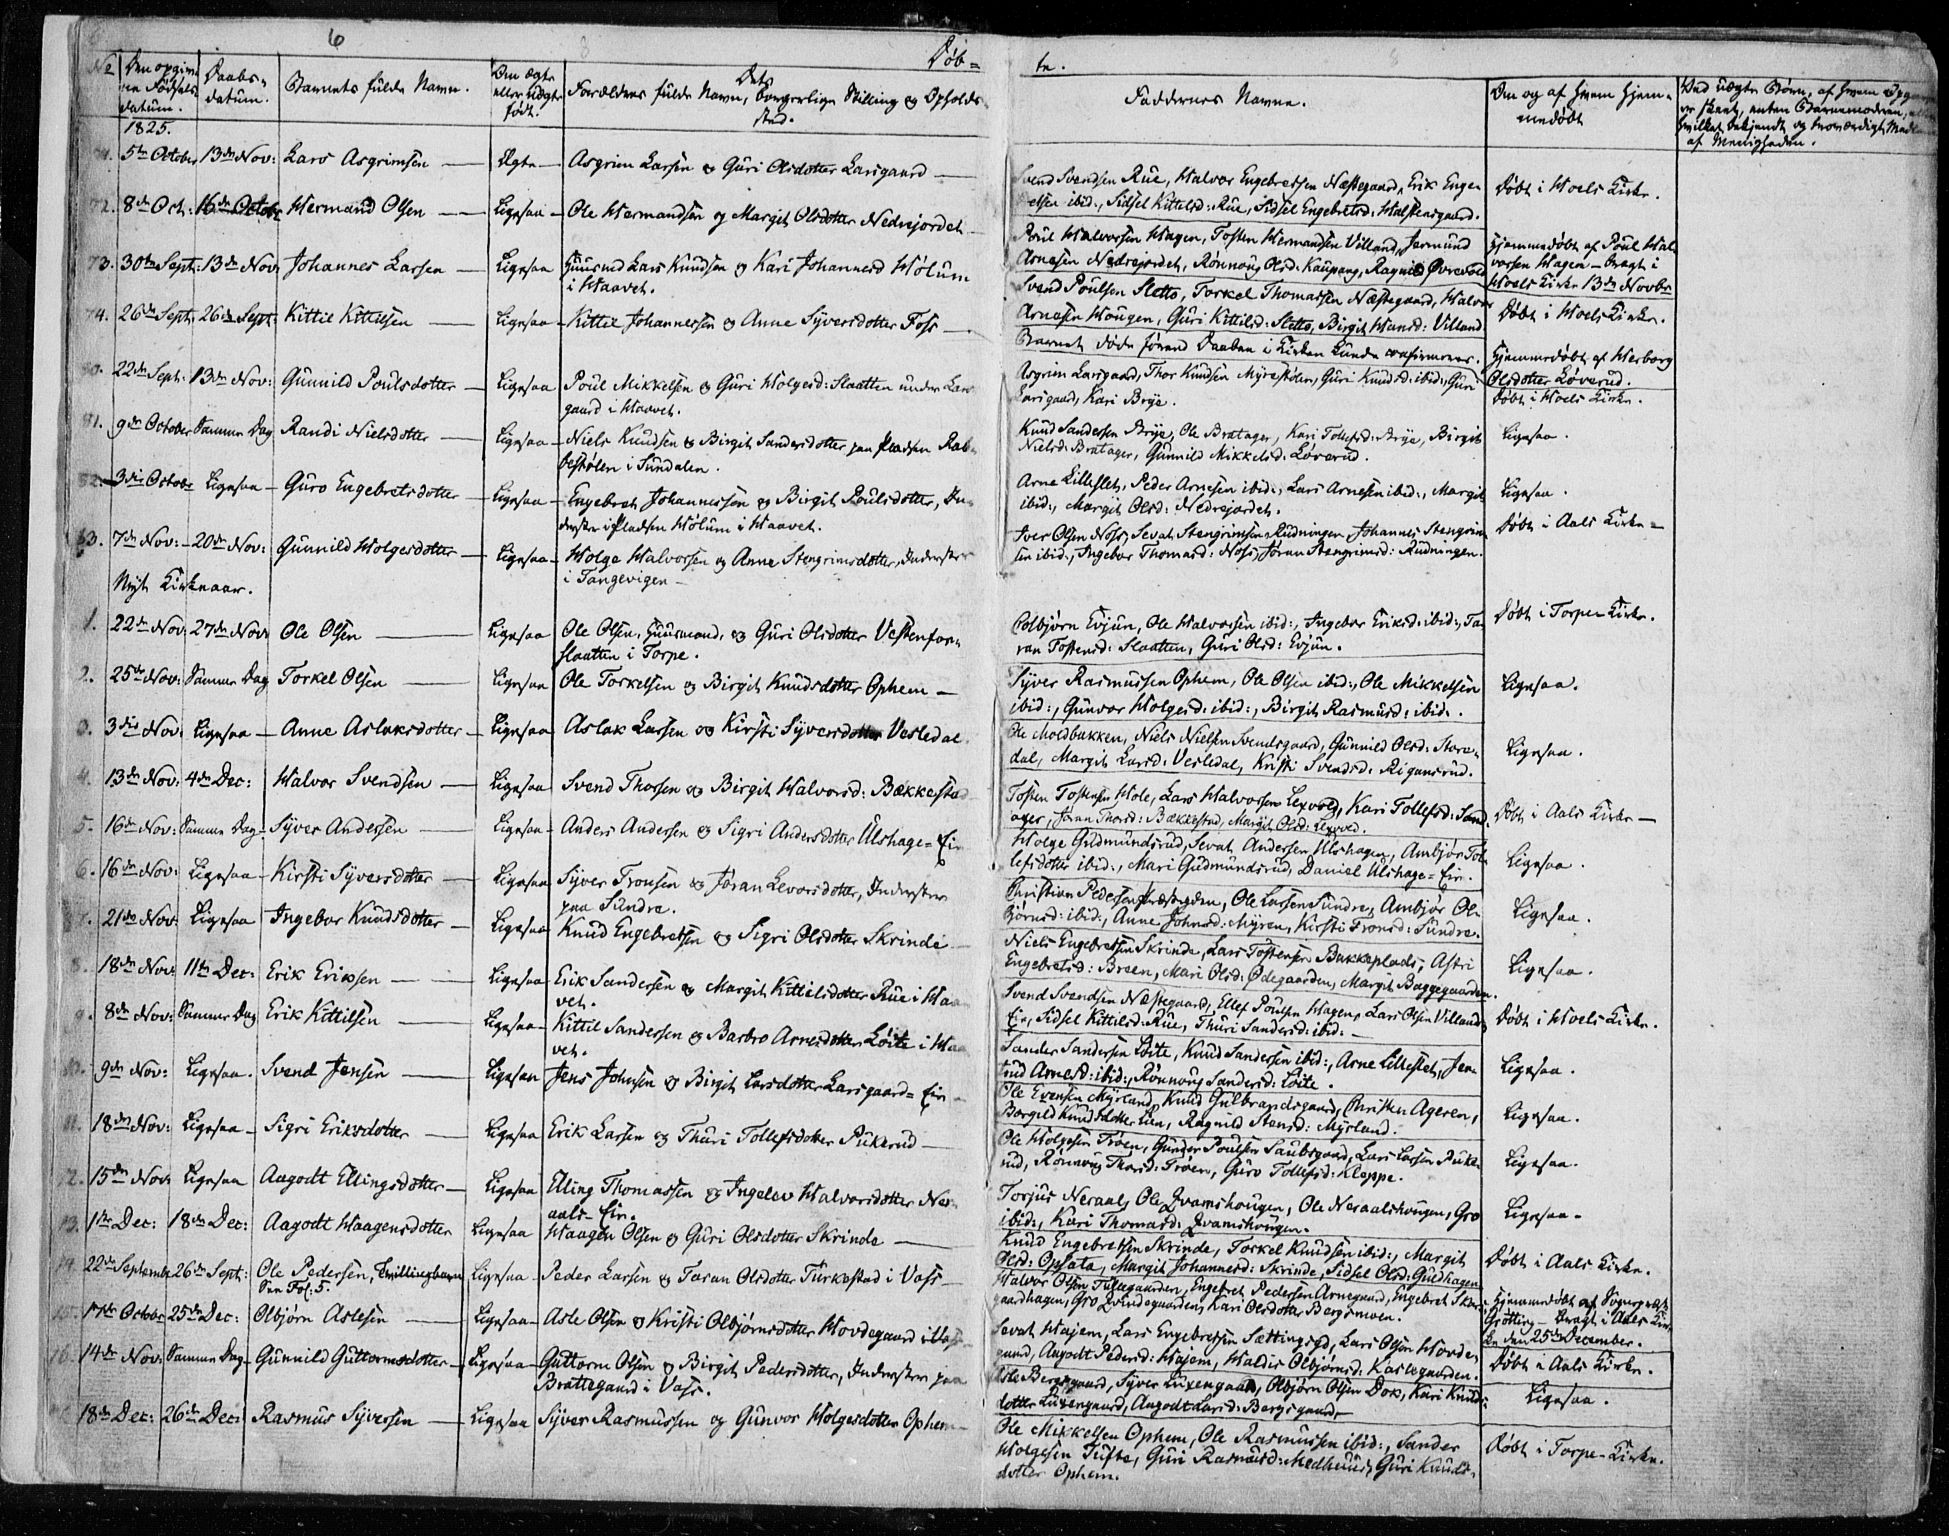 6
Døb=
te.
No
Den opgiv-
ne Fødsels
datum.
Daabs-
datum.
Barnets fulde Navn.
Om ægte
eller uægte
født.
Dets
Forældres fulde Navn, borgerlige Stilling og Opholds-
sted.
Faddernes Navne.
Om og af hvem hjem-
medøbt
Ved uægte Børn, af hvem Opgaven
er skeet, enten Barnemoderen, eller
hvilket bekjendt og troværdigt Medlem
af Menigheden.
1825.
5te October 13de Nov: Lars Asgrimsen — Ægte — Asgrim Larsen & Guri Olsdotter Larsgaard —
Svend Svendsen Rue, Halvor Engebretsen Næstegaard, Erik Enge-
bretsen ibid:, Sidsel Kittilsd: Rue, Sidsel Engebretsd: Halstensgaard.
Døbt i Hoels Kirke.
72. 8de Oct: 16de Octobr Hermand Olsen — Ligesaa — Ole Hermandsen og Margit Olsdotter Nedrejordet —
Poul Halvorsen Hagen, Tosten Hermandsen Villand, Jermund
Arnesen Nedrejordet, Rønnoug Olsd: Kaupang, Ragnild Øvrevold
Hjemmedøbt af Poul Hal-
vorsen Hagen — bragt i
Hoels Kirke 13de Novbr
73. 30te Sept: 13de Nov Johannes Larsen — Ligesaa Huusmd Lars Knudsen & Kari Johannesd Hølum
i Haavet.
Svend Poulsen Sletto, Torkel Thomassen Næstegaard, Halvor
Arnesen Hougen, Guri Kittilsd: Sletto, Birgit Hansd: Villand
Døbt i Hoels Kirke.
74. 26de Sept: 26de Sept: Kittil Kittilsen — Ligesaa — Kittil Johannessen & Anne Syversdotter Foss —
Barnet døde førend Daaben i Kirken kunde confirmeres.
Hjemmedøbt af Herborg
Olsdotter Løverud.
80. 22de Sept: 13de Nov: Gunnild Poulsdotter — Ligesaa Poul Mikkelsen & Guri Holgerd: Slaatten under Lars-
gaard i Haavet.
Asgrim Larsgaard, Thor Knudsen Myrestølen, Guri Knudsd: ibid:, Guri
Larsgaard, Kari Brye.
Døbt i Hoels Kirke.
81. 9de October Samme Dag Randi Nielsdotter — Ligesaa — Niels Knudsen & Birgit Sandersdotter paa Pladsen Rab-
bestølen i Sundalen.
Knud Sandersen Brye, Ole Bratager, Kari Tollefsd: Brye, Birgit
Nielsd: Bratager, Gunnild Mikkelsd: Løverud.
Ligesaa.
82. 3die Octobr Ligesaa — Guro Engebretsdotter — Ligesaa — Engebret Johannessen & Birgit Poulsdotter, In-
derster i Pladsen Hølum i Haavet.
Arne Lilleslet, Peder Arnesen ibid:, Lars Arnesen ibid:, Margit
ibid:, Margit Olsd: Nedrejordet.
Ligesaa.
83. 7de Nov: — 20de Nov: Gunnild Holgesdotter — Ligesaa — Holge Halvorsen og Anne Stengrimsdotter, Inderster
i Tangevigen —
Iver Olsen Noss, Sevat Stengrimsen Rudningen, Johannes Stengrim-
sen ibid:, Ingebor Thomasd: Noss, Jøran Stengrimsd: Rudningen.
Døbt i Aals Kirke =
Nyt Kirkeaar.
1. 22de Nov: 27de Nov: Ole Olsen — Ligesaa Ole Olsen, Huusmand, & Guri Olsdotter Vestenfor-
slaatten i Torpe.
Colbjørn Evjun, Ole Halvorsen ibid:, Ingebor Eriksd: ibid:, Ta-
ran Tostensd: Slaatten, Guri Olsd: Evjun.
Døbt i Torpe-Kirke.
2. 25de Nov: Samme Dag Torkel Olsen — Ligesaa Ole Torkelsen & Birgit Knudsdotter Ophem —
Syver Rasmussen Ophem, Ole Olsen ibid:, Ole Mikkelsen
ibid:, Gunvor Holgesd: ibid:, Birgit Rasmusd: ibid:.
Ligesaa.
3. 3die Nov: Ligesaa — Anne Aslaksdotter — Ligesaa Aslak Larsen & Kirsti Syversdotter Vesledal.
Ole Moldbakken, Niels Nielsen Svendsgaard, Gunnild Olsd: Store-
dal, Margit Larsd: Vesledal, Kristi Svendsd: Rigansrud.
Ligesaa.
4. 13de Nov: 4de Dec: Halvor Svendsen — Ligesaa Svend Thorsen & Birgit Halvorsd: Bækkestad
Tosten Tostensen Hole, Lars Halvorsen Lexvold, Kari Tollefsd: Sand-
ager, Jøran Thorsd: Bækkestad, Margit Olsd: Lexvold.
Døbt i Aals Kirke —
5. 16de Nov: Samme Dag — Syver Andersen — Ligesaa — Anders Andersen & Sigri Andersdotter Ulshage=Eie
Holge Gudmundsrud, Sevat Andersen Ulshagen, Ambjør Tol-
lefsdotter ibid:, Mari Gudmundsrud, Daniel Ulshage=Eie.
Ligesaa.
6. 16de Nov: Ligesaa — Kirsti Syversdotter — Ligesaa Syver Tronsen & Jøran Levorsdotter, Inderster
paa Sundre.
Christian Pedersen Præstegden, Ole Larsen Sundre, Ambjør Ol-
bjørnsd: ibid:, Anne Johnsd: Myren, Kirsti Tronsd: Sundre.
Ligesaa.
7. 21de Nov: Ligesaa Ingebor Knudsdotter — Ligesaa Knud Engebretsen & Sigri Olsdotter Skrinde —
Niels Engebretsen Skrinde, Lars Tostensen Bakkeplads, Astri
Engebretsd: Breen, Mari Olsd: Ødegaarden, Margit Baggegaarden.
Ligesaa.
8. 18de Nov: 11te Dec: Erik Eriksen — Ligesaa Erik Sandersen & Margit Kittilsdotter Rue i Haa-
vet.
Svend Svendsen Næstegaard, Ellef Poulsen Hagen, Lars Olsen Villands
Eie, Sidsel Kittilsd: Rue, Thuri Sandersd: ibid: —
Døbt i Hoels Kirke.
9. 8de Nov: Samme Dag Erik Kittilsen — Ligesaa — Kittil Sandersen & Barbro Arnesdotter Løite i Haa-
vet.
Sander Sandersen Løite, Knud Sandersen ibid:, Arne Lilleslet, Jer-
trud Arnesd: ibid:, Rønnoug Sandersd: Løite.
Ligesaa.
10. 9de Nov: Ligesaa. Svend Jensen — Ligesaa Jens Johnsen & Birgit Larsdotter Larsgaard=Eie —
Ole Evensen Myrland, Knud Gulbrandsgaard, Christen Ageren,
Borgild Knudsdotter Lien, Ragnild Stensd: Myrland.
Ligesaa.
11. 18de Nov: Ligesaa — Sigri Eriksdotter — Ligesaa Erik Larsen & Thuri Tollefsdotter Pukerud —
Ole Holgesen Trøen, Gunder Poulsen Saubsgaard, Lars Larsen Puke-
rud, Rønnoug Thorsd: Trøen, Guro Tollefsd: Kleppe.
Ligesaa.
12. 15de Nov: Ligesaa Aagodt Ellingsdotter — Ligesaa Elling Thomassen & Ingelev Halvorsdotter Ner-
aals-Eie.
Torjus Neraal, Ole Qvamshougen, Ole Neraalshougen, Gro
ibid:, Kari Thomasd: Qvamshougen.
Ligesaa.
13. 1ste Dec: 18de Dec: Aagodt Haagensdotter Ligesaa Haagen Olsen & Guri Olsdotter Skrinde —
Knud Engebretsen Skrinde, Torkel Knudsen ibid:, Margit
Olsd: Opsata, Margit Johannesd: Skrinde, Sidsel Olsd: Guldhagen
Døbt i Aals Kirke.
14. 22de Septembr 26de Sept: Ole Pedersen, Tvillingbarn Ligesaa — Peder Larsen & Taran Olsdotter Turkestad i Vass —
See Fol: 5.
Halvor Olsen Tollegaarden, Engebret Pedersen Arnegaard, Engebret Skar-
gaardhagen, Gro Qvindegaarden, Kari Olsdotter Bergsmoen.
Hjemmedøbt af Sognepræst
Grøtting — bragt i Aals Kir-
ke den 25de December.
15. 17de Octobr 25de Dec: Olbjørn Aslesen — Ligesaa — Asle Olsen & Kristi Olbjørnsdotter Hovdegaard i Vass
Sevat Hajem, Lars Engebretsen Sættingsgd, Lars Olsen Hovde-
gaard, Aagodt Pedersd: Hajem, Haldis Olbjørnsd: Karlegaarden.
Døbt i Aals Kirke.
16. 14de Nov: Samme Dag — Gunnild Guttormsdotter — Ligesaa — Guttorm Olsen & Birgit Pedersdotter, Inderster paa
Brattegaard i Vass.
Asle Bergsgaard, Syver Luxengaard, Olbjørn Olsen Dok, Kari Knuds-
dotter Luxengaard, Aagodt Larsd: Bergsgaard.
Ligesaa.
18de Dec: 26de Dec: Rasmus Syversen — Ligesaa Syver Rasmussen og Gunvor Holgesdotter Ophem —
Ole Mikkelsen Ophem, Ole Rasmussen ibid:, Sander
Holgesen Tufte, Guri Rasmusd: Medhuus, Guri Knuds-
dotter Ophem.
Døbt i Torpe-Kirke.